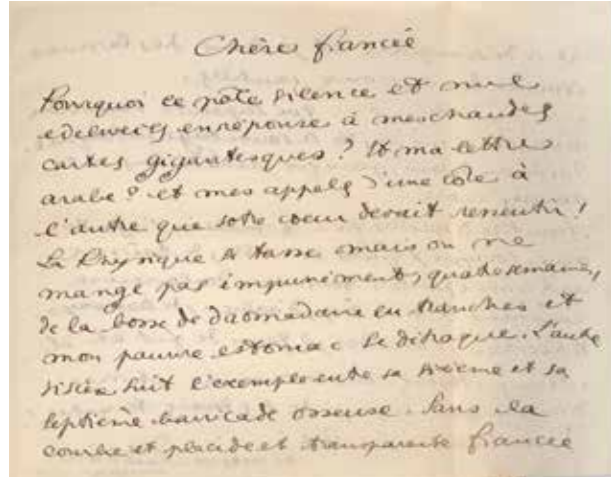 Chère fiancée
Pourquoi ce pâle silence et nul
edelweiss en réponse à mes chaudes
cartes gigantesques? Et ma lettre
arabe? et mes appels d'une côte à
l'autre que votre coeur devait ressentir!
Le Physique se tasse mais on ne
mange pas impunément, quatre semaines,
de la bosse de dromadaire en tranches et
mon pauvre estomac se détraque. L'autre
viscère suit l'exemple entre sa sixième et sa
septième barricade osseuse. Sans la
courbe et placide et transparente fiancée